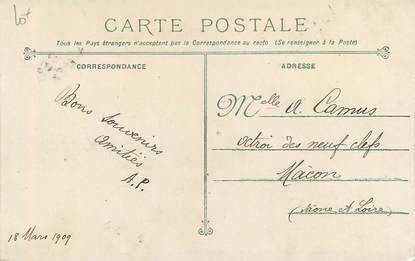 Lot
CARTE POSTALE
Tous les Pays étrangers n'acceptent pas la Correspondance au recto (Se renseigner à la Poste)
CORRESPONDANCE
ADRESSE
Bons souvenirs
amitiés
A.P.
18 Mars 1909
Melle A. Camus
octroi des neuf clefs
Mâcon
(Saône et Loire)